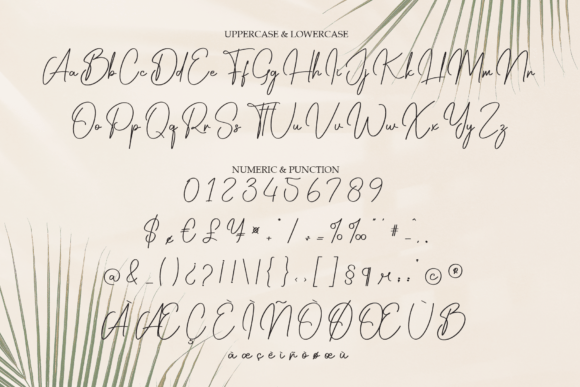 UPPERCASE & LOWERCASE
Aa Bb Cc Dd Ee Ff Gg Hh Ii Jj Kk Ll Mm Nn
Oo Pp Qq Rr Ss Tt Uu Vv Ww Xx Yy Zz
NUMERIC & PUNCTION
0 1 2 3 4 5 6 7 8 9
$ ¢ € £ ¥ ¤ + * / ÷ = % ‰ " ' # ^ _ . .
@ & _ ( ) ¿ ? / | \ | { } . , [ ] § ¶ © ®
À Æ Ç È Ì Ñ Ò Ø Œ Ù ß
à æ ç è ì ñ ò ø œ ù